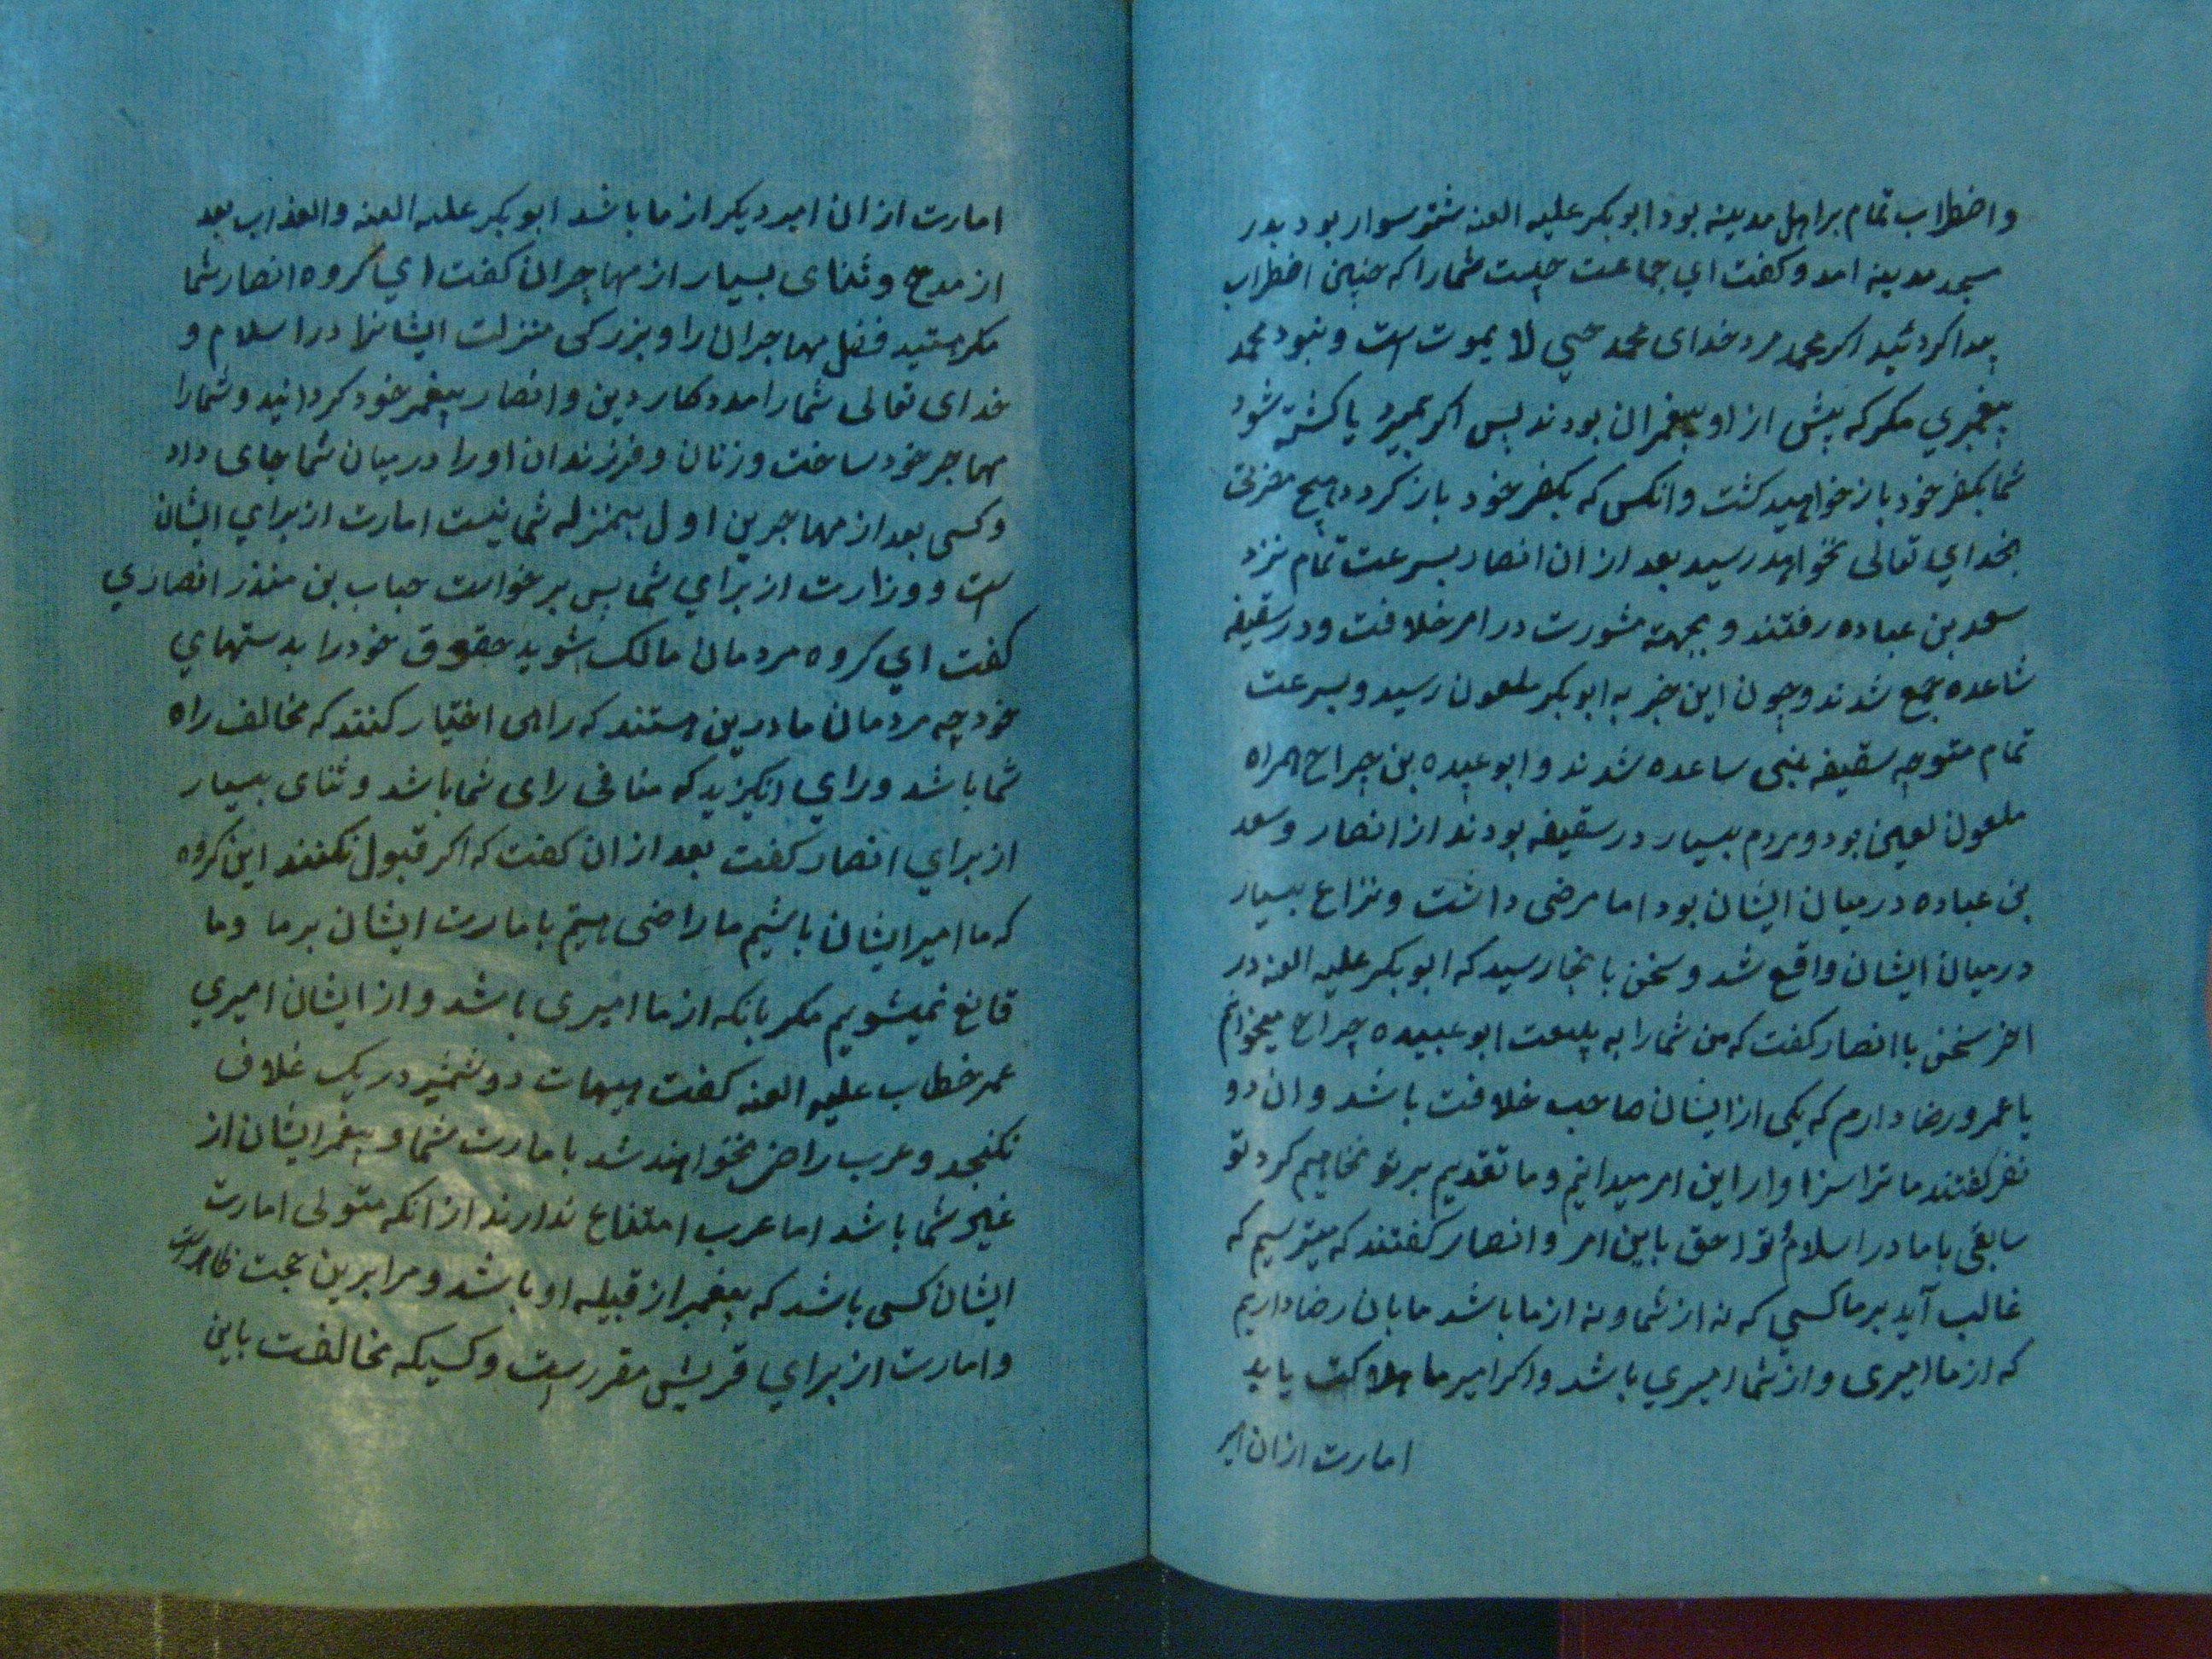 و اضطراب تمام براهل مدینه بود ابوبکر علیه العنه شتر سوار بود بدر
مسجد مدینه امد و کفت ای جماعت چیست شما را که چنین اضطراب
پیدا کرده‌ئید اکر محمد مرد خدای محمد حیی لا یموت است و نبود محمد
پیغمبری مکر که پیش از او پیغمبران بودند پس اکر بمیرد یا کشته شود
شما بکفر خود باز خواهید کشت و انکس که بکفر خود باز کردد هیچ مضرتی
بخدای تعالی نخواهد رسید بعد از ان انصار بسرعت تمام نزد
سعد بن عباده رفتند و بجهته مشورت در امر خلافت و در سقیفه
ساعده جمع شدند و چون این خبر به ابوبکر ملعون رسید و بسرعت
تمام متوجه سقیفه بنی ساعده شدند و ابو عبیده بن جراح همراه
ملعون لعین بود و مردم بسیار در سقیفه بودند از انصار و سعد
بن عباده در میان ایشان بود اما مرضی داشت و نزاع بسیار
در میان ایشان واقع شد و سخن با نجا رسید که ابوبکر علیه العنه در
اخر سخن با انصار کفت که من شما را به بیعت ابو عبیده جراح میخوانم
یا عمر و رضا دارم که یکی از ایشان صاحب خلافت باشد و ان دو
نفر کفتند ما ترا سزاوار این امر میدانیم و ما تقدیم بر تو نخاهیم کرد تو
سابقی با ما در اسلام و تو احق باین امر و انصار کفتند که میترسیم که
غالب آید بر ما کسی که نه از شما و نه از ما باشد ما بان رضا داریم
که از ما امیری و از شما امیری باشد و اکر امیر ما هلاکت یابد
امارت از ان امیر
امارت از ان امیر دیکر از ما باشد ابوبکر علیه العنه و العذاب بعد
از مدح و ثنای بسیار از مهاجران کفت ای کروه انصار شما
مکر هستید فضل مهاجران را و بزرکی منزلت ایشانرا در اسلام و
خدای تعالی شما را مددکار دین و انصار پیغمبر خود کردانید و شما را
مهاجر خود ساخت و زنان و فرزندان او را در میان شما جای داد
و کسی بعد از مهاجرین اول بمنزله شما نیست امارت از برای ایشان
است و وزارت از برای شما پس برخواست حباب بن منذر انصاری
کفت ای کروه مردمان مالک شوید حقوق خود را بدستهای
خود چه مردمان ما درین هستند که راهی اختیار کنند که مخالف راه
شما باشد و رای انکیزید که منافی رای شما باشد و ثنای بسیار
از برای انصار کفت بعد از ان کفت که اکر قبول نکنند این کروه
که ما امیر ایشان باشیم ما راضی هستیم با مارت ایشان بر ما و ما
قانع نمیشویم مکر بانکه از ما امیری باشد و از ایشان امیری
عمر خطاب علیه العنه کفت هیهات دو شمشیر در یک غلاف
نکنجد و عرب راضی نخواهند شد با مارت شما و پیغمبر ایشان از
غیر شما باشد اما عرب امتناع ندارند از انکه متولی امارت
ایشان کسی باشد که پیغمبر از قبیله او باشد و مرا برین حجت ظاهراست
و امارت از برای قریش مقرر است و کسیکه مخالفت باین